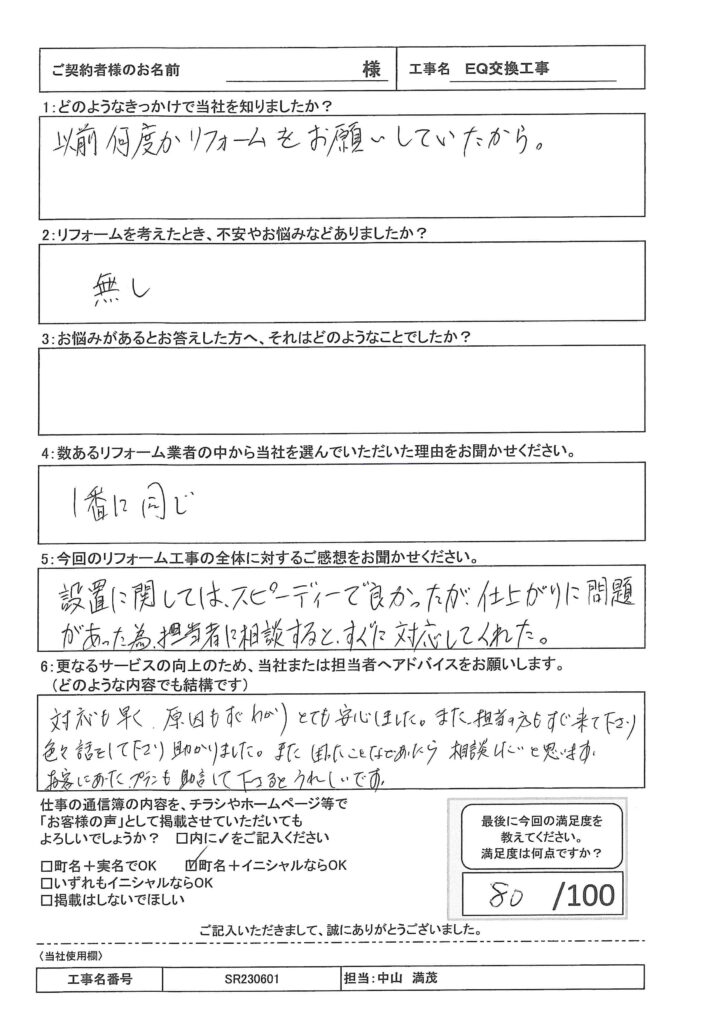 ご契約者様のお名前 様 工事名 EQ交換工事
1:どのようなきっかけで当社を知りましたか?
以前何度かリフォームをお願いしていたから。
2:リフォームを考えたとき、不安やお悩みなどありましたか?
無し
3:お悩みがあるとお答えした方へ、それはどのようなことでしたか?
4:数あるリフォーム業者の中から当社を選んでいただいた理由をお聞かせください。
1番に同じ
5:今回のリフォーム工事の全体に対するご感想をお聞かせください。
設置に関しては、スピーディーで良かったが、仕上がりに問題
があった為、担当者に相談すると、すぐに対応してくれた。
6:更なるサービスの向上のため、当社または担当者へアドバイスをお願いします。
(どのような内容でも結構です)
対応も早く、原因もすぐわかりとても安心しました。また、担当の方もすぐ来て下さり
色々話をして下さり助かりました。また困ったことなどあったら相談したいと思います。
お客にあったプランも助言して下さるとうれしいです。
仕事の通信簿の内容を、チラシやホームページ等で
「お客様の声」として掲載させていただいても
よろしいでしょうか? □内に✓をご記入ください
□町名+実名でOK ☑町名+イニシャルならOK
□いずれもイニシャルならOK
□掲載はしないでほしい
最後に今回の満足度を
教えてください。
満足度は何点ですか?
80 /100
ご記入いただきまして、誠にありがとうございました。
〈当社使用欄〉
工事名番号 SR230601 担当:中山 満茂